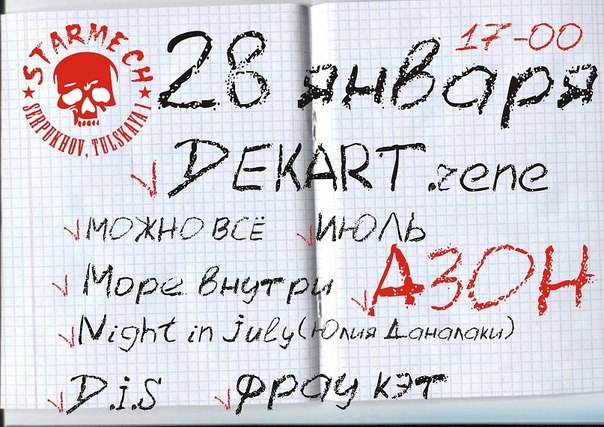 STARMECH
SERPUKHOV, TULSKAYA 1
17-00
28 января
DEKART.rene
МОЖНО ВСЁ ИЮЛЬ
Море внутри АЗОН
Night in july (Юлия Даналаки)
D.i.S фрау кэт